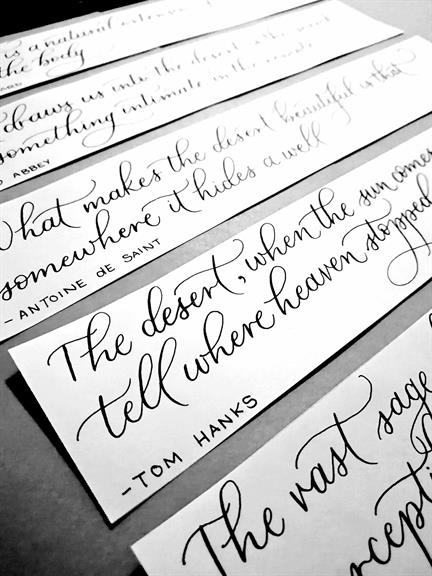 is a natural extension
the body
draws us into the desert is the
something intimate in the remote
ABBEY
What makes the desert beautiful is that
somewhere it hides a well
- ANTOINE de SAINT
The desert, when the sun comes
tell where heaven stopped
-TOM HANKS
The vast sage